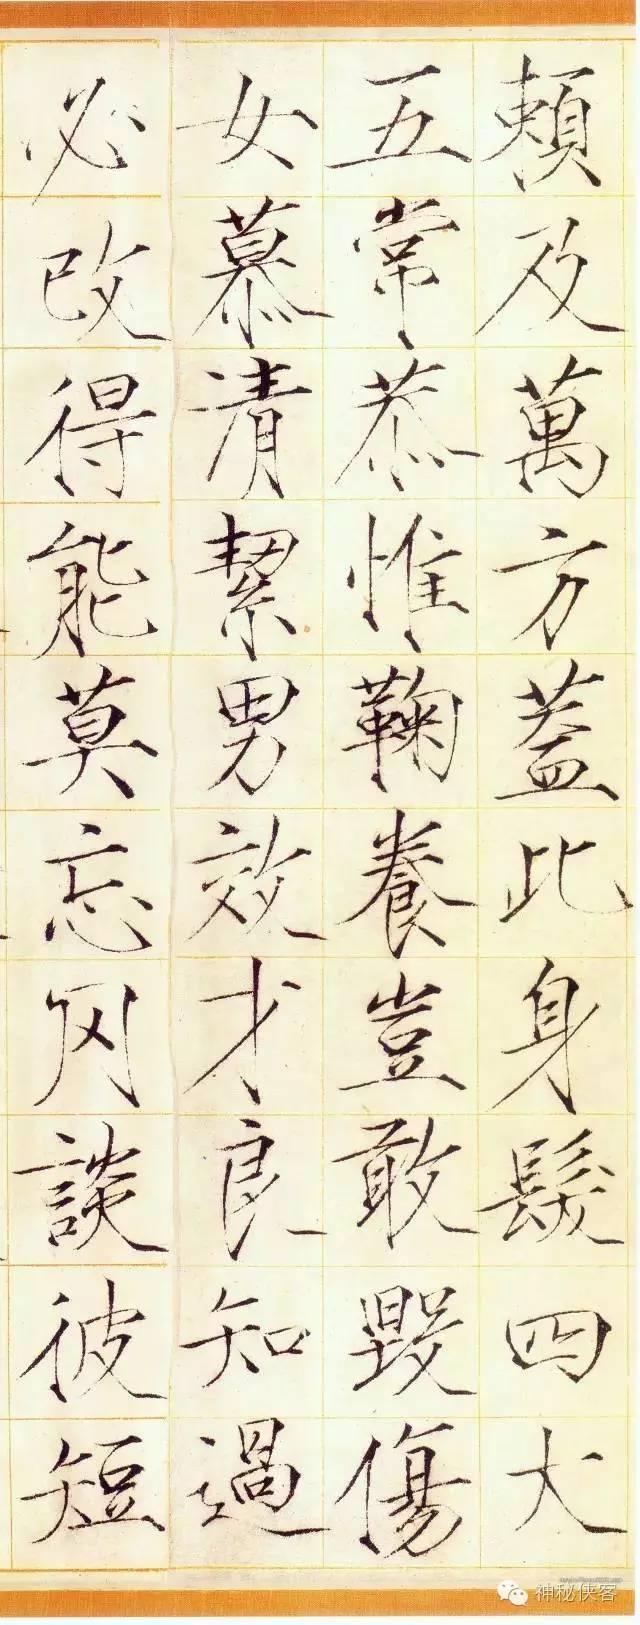 頼及萬方蓋此身髮四大
五常恭惟鞠養豈敢毀傷
女慕清絜男效才良知過
必改得能莫忘罔談彼短
神秘侠客